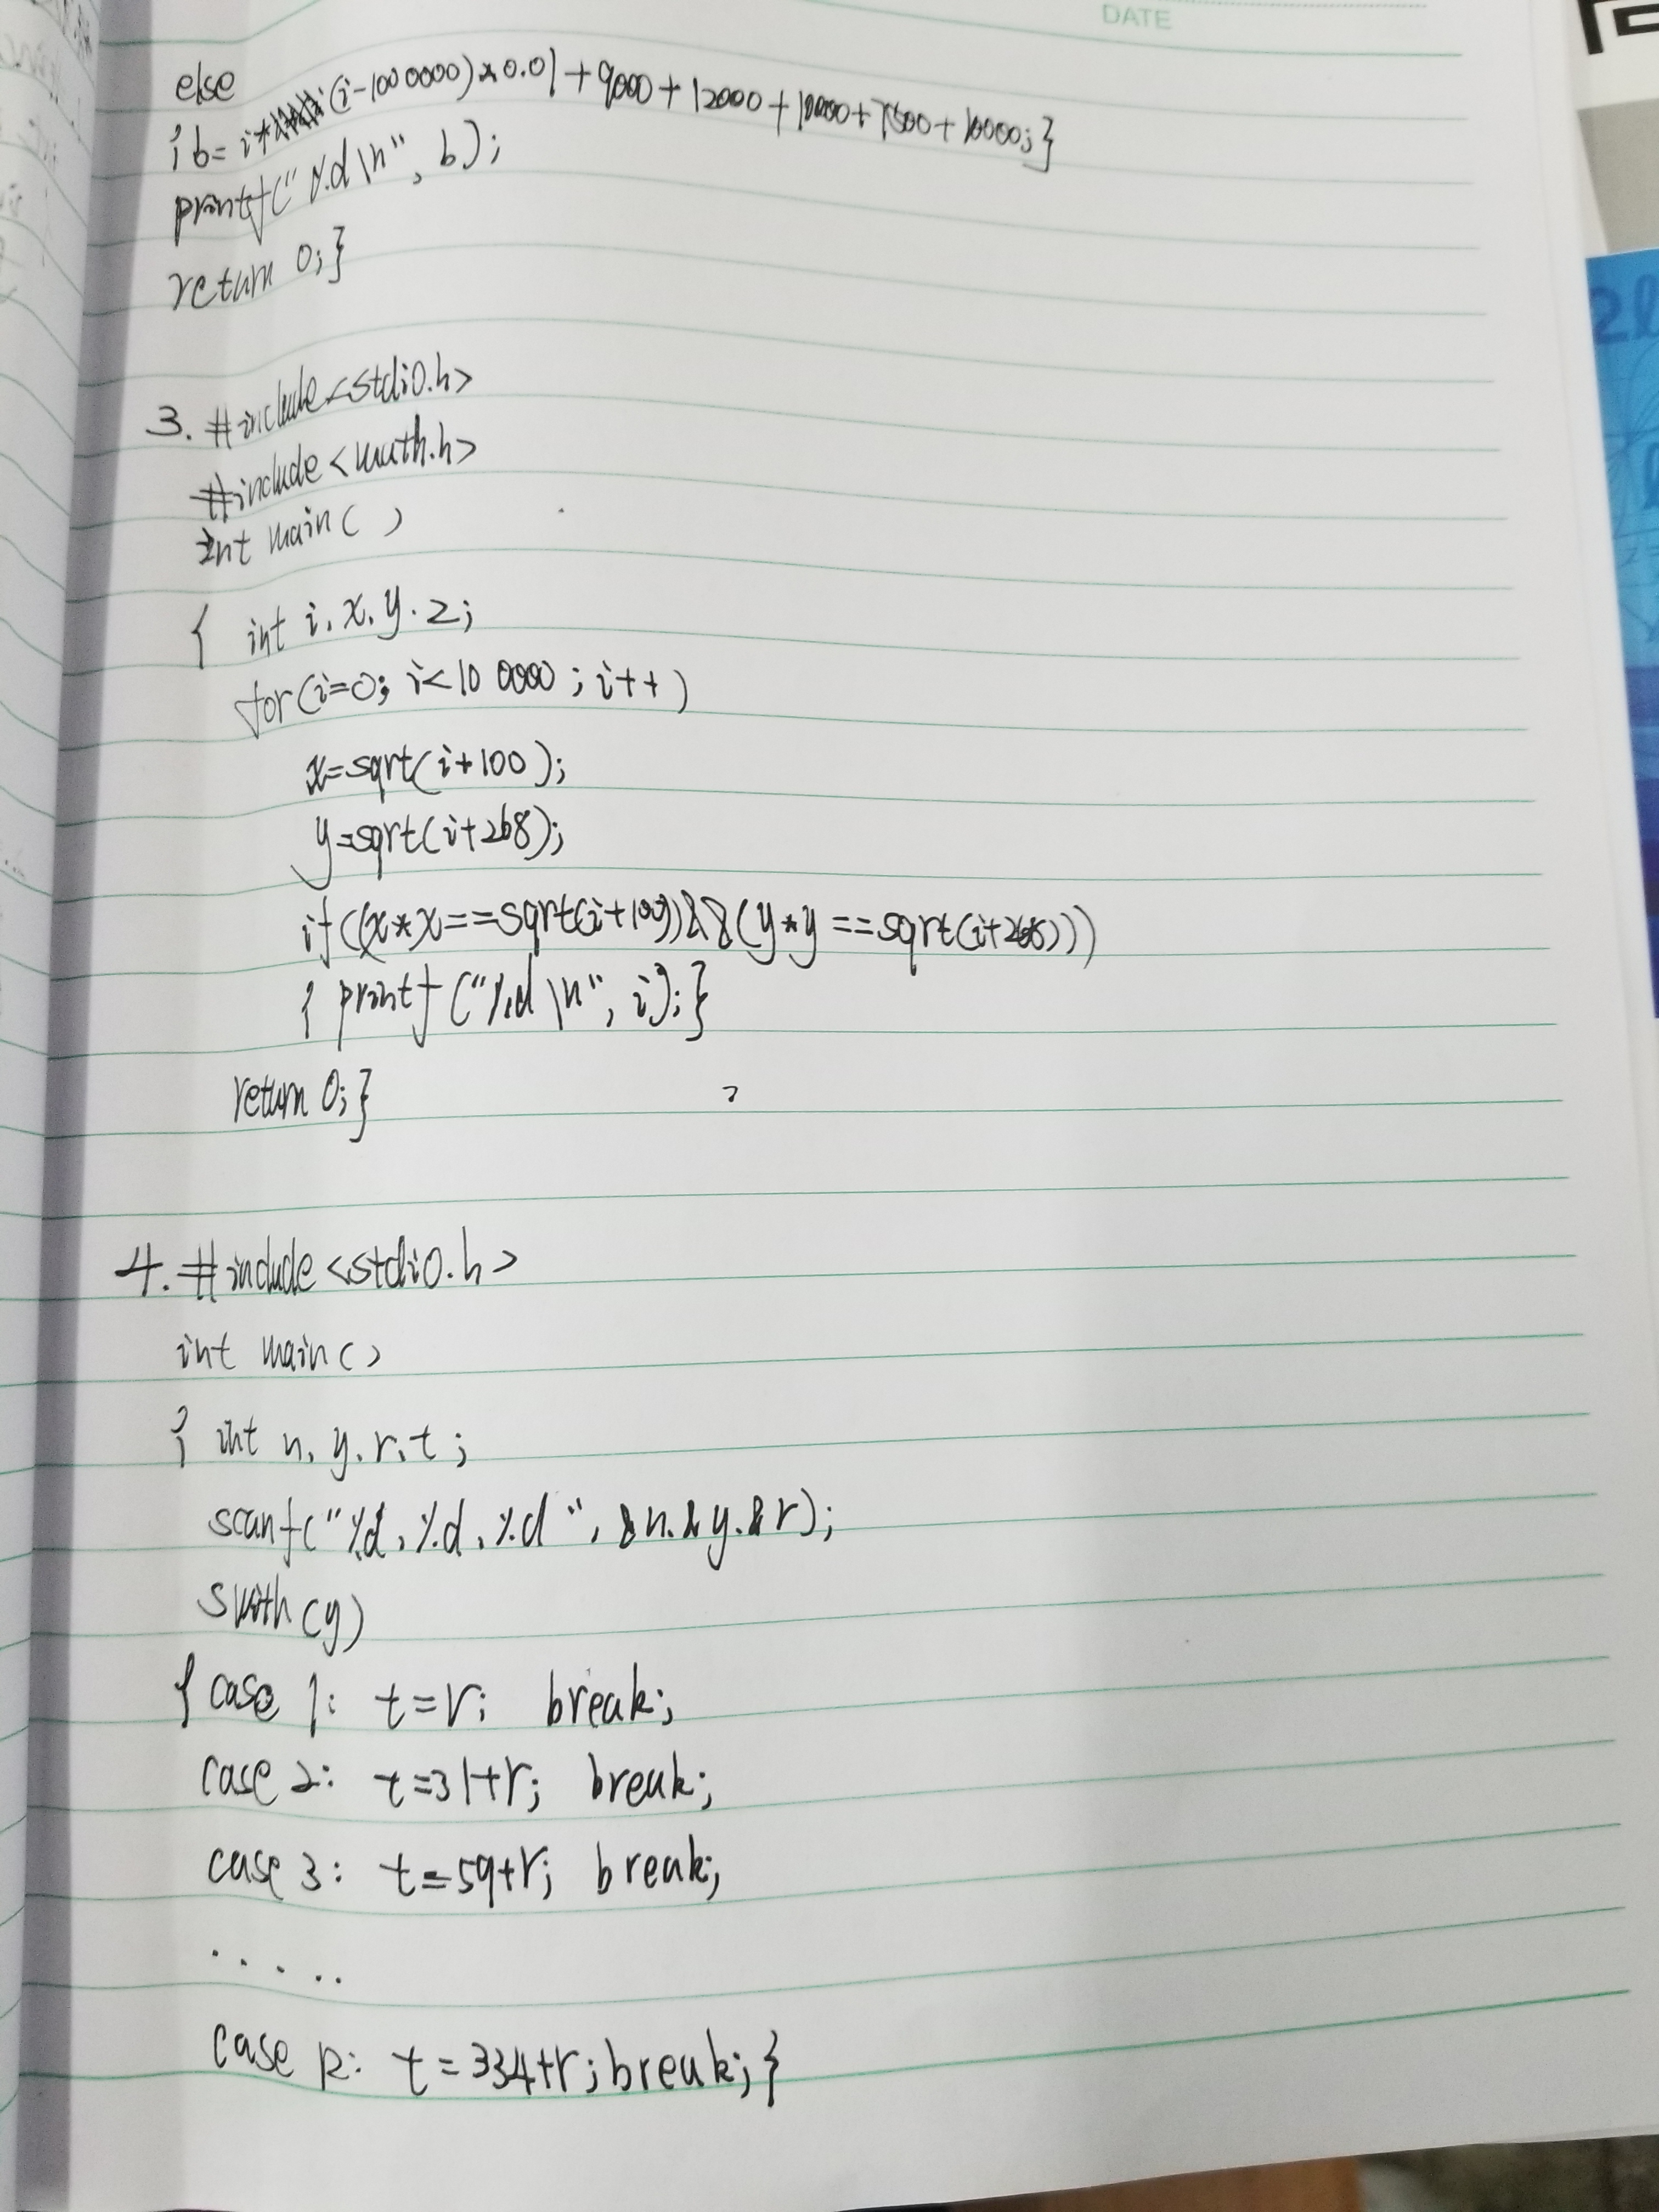 DATE
else
{b=(i-1000000)*0.01+9000+12000+10000+7500+10000;}
printf("%d\n", b);
return 0;}
3. #include<stdio.h>
#include<math.h>
int main( )
{ int i, x, y, z;
for(i=0; i<10 0000 ; i++)
x=sqrt(i+100);
y=sqrt(i+268);
if((x*x==sqrt(i+100))&&(y*y==sqrt(i+268)))
{ printf("%d\n", i);}
return 0;}
4. #include<stdio.h>
int main()
{ int n, y, r, t;
scanf("%d,%d,%d", &n,&y,&r);
swith(y)
{ case 1: t=r; break;
case 2: t=31+r; break;
case 3: t=59+r; break;
.....
case 12: t=334+r; break;}
2l